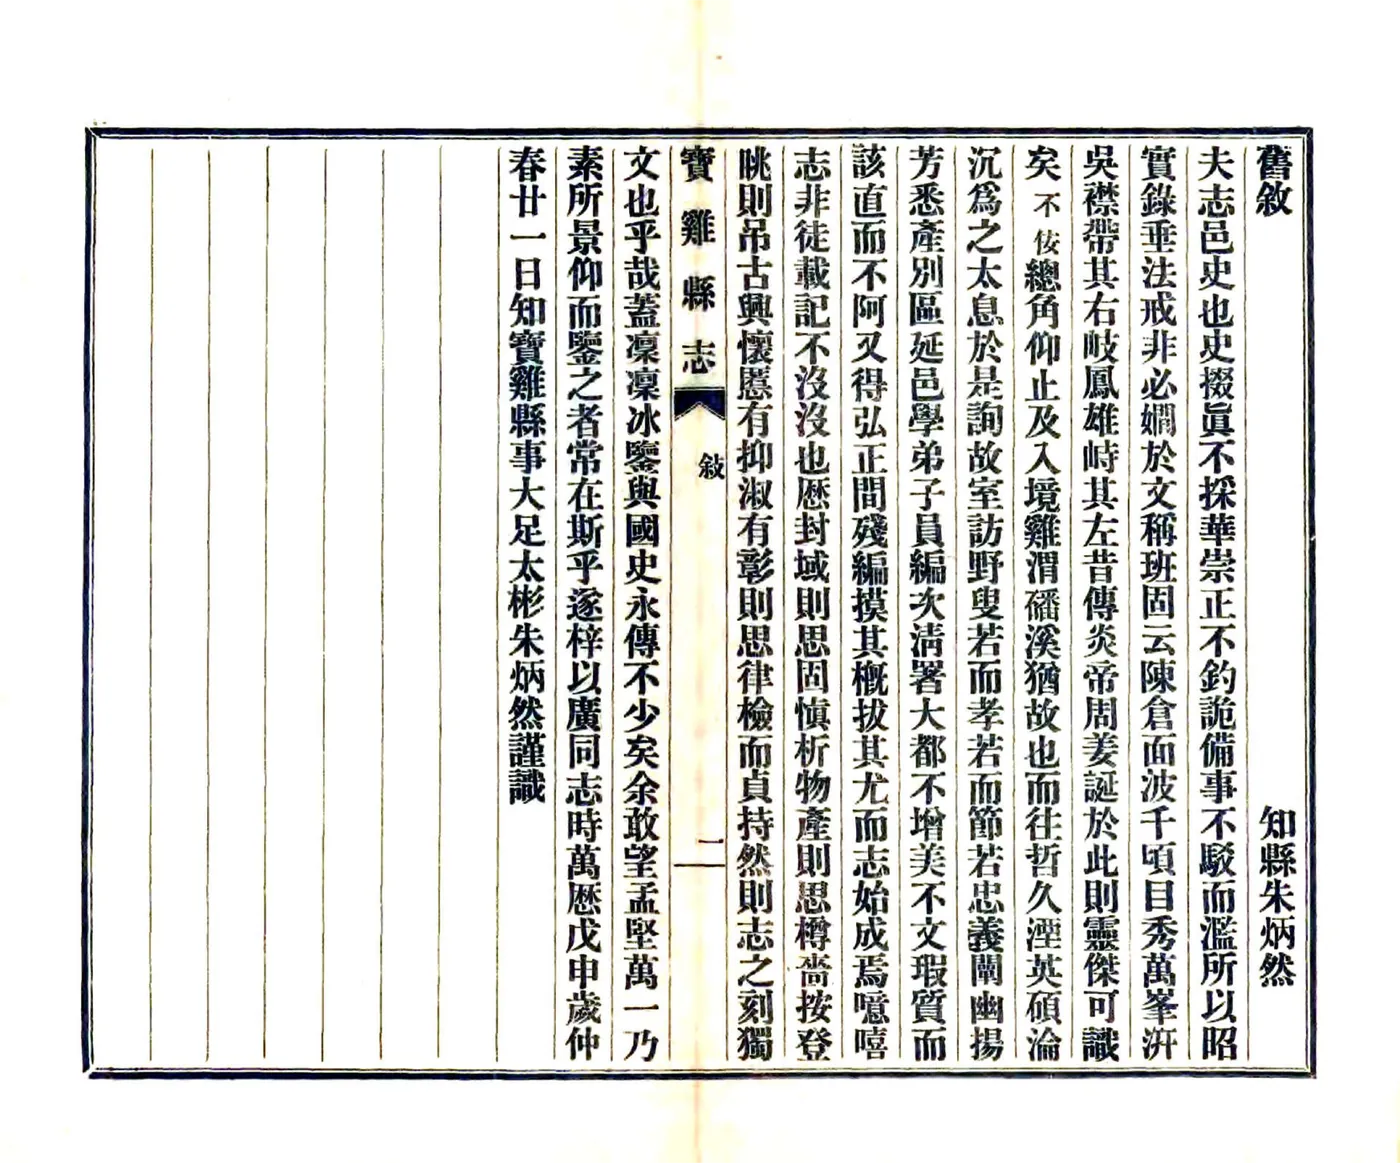 舊敘 知縣朱炳然
夫志邑史也史掇眞不採華崇正不釣詭備事不駁而濫所以昭
實錄垂法戒非必嫺於文稱班固云陳倉面波千頃目秀萬峯汧
吳襟帶其右岐鳳雄峙其左昔傳炎帝周姜誕於此則靈傑可識
矣不佞總角仰止及入境雞渭磻溪猶故也而往哲久湮英碩淪
沉爲之太息於是詢故室訪野叟若而孝若而節若忠義闡幽揚
芳悉產別區延邑學弟子員編次淸署大都不增美不文瑕質而
該直而不阿又得弘正間殘編摸其槪拔其尤而志始成焉噫嘻
志非徒載記不沒沒也歷封域則思固愼析物產則思樽嗇按登
眺則吊古興懷慝有抑淑有彰則思律檢而貞持然則志之刻獨
寶雞縣志 敍 二
文也乎哉蓋凜凜冰鑒與國史永傳不少矣余敢望孟堅萬一乃
素所景仰而鑒之者常在斯乎遂梓以廣同志時萬歷戊申歲仲
春廿一日知寶雞縣事大足太彬朱炳然謹識